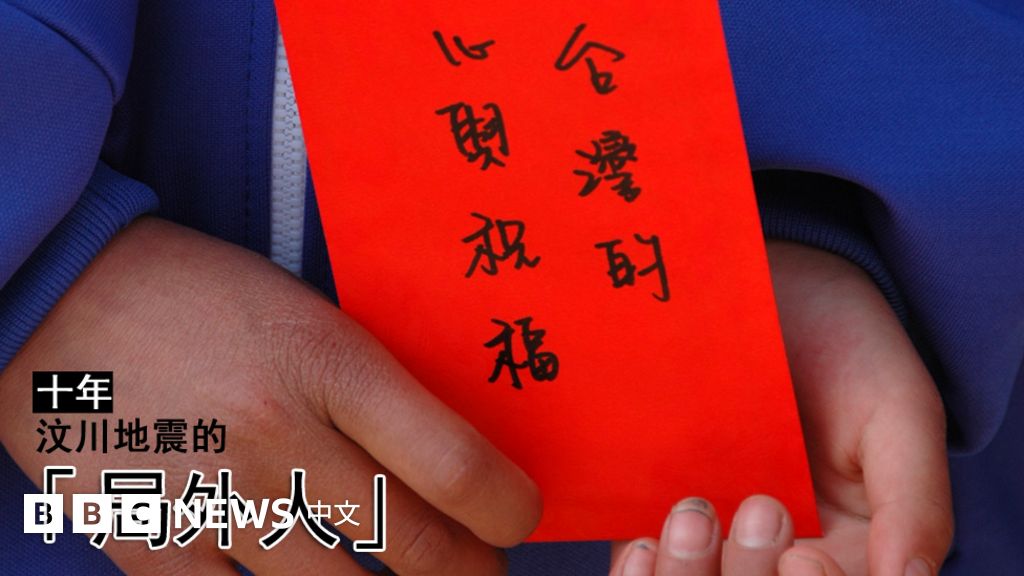 台灣的
心與祝福
十年
汶川地震的
「局外人」
BBC NEWS 中文